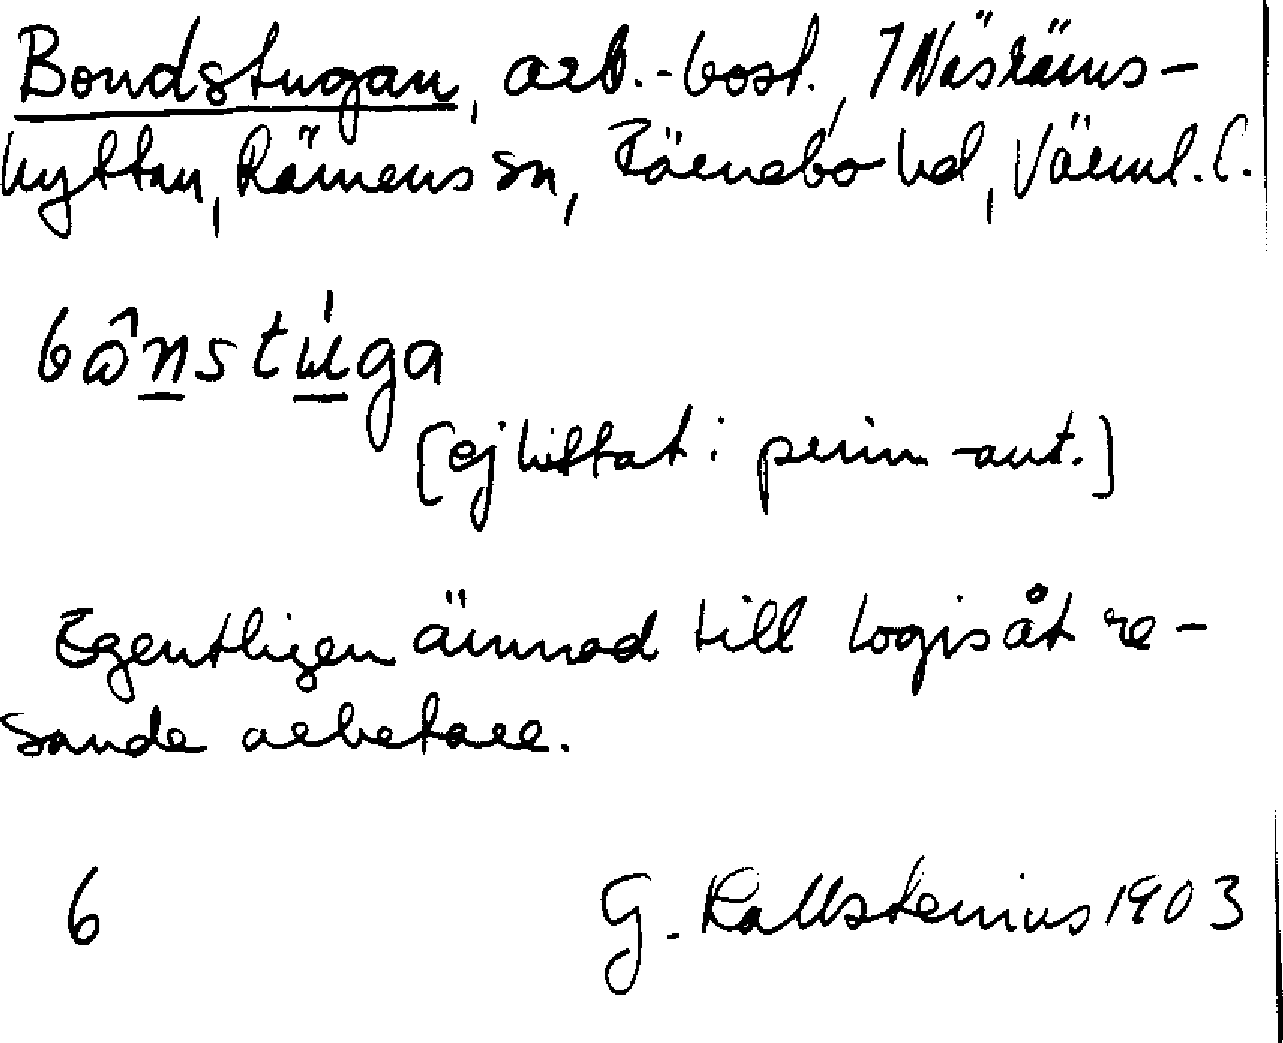 Bondstugan, arb.-bost., 7 Näsräms-
hyttan, Rämens sn, Färnebo hd, Värml. l.
bônstúga
[ej hittat i perm -ant.]
Egentligen ämnad till logis åt re-
sande arbetare.
6 G. Kallstenius 1903